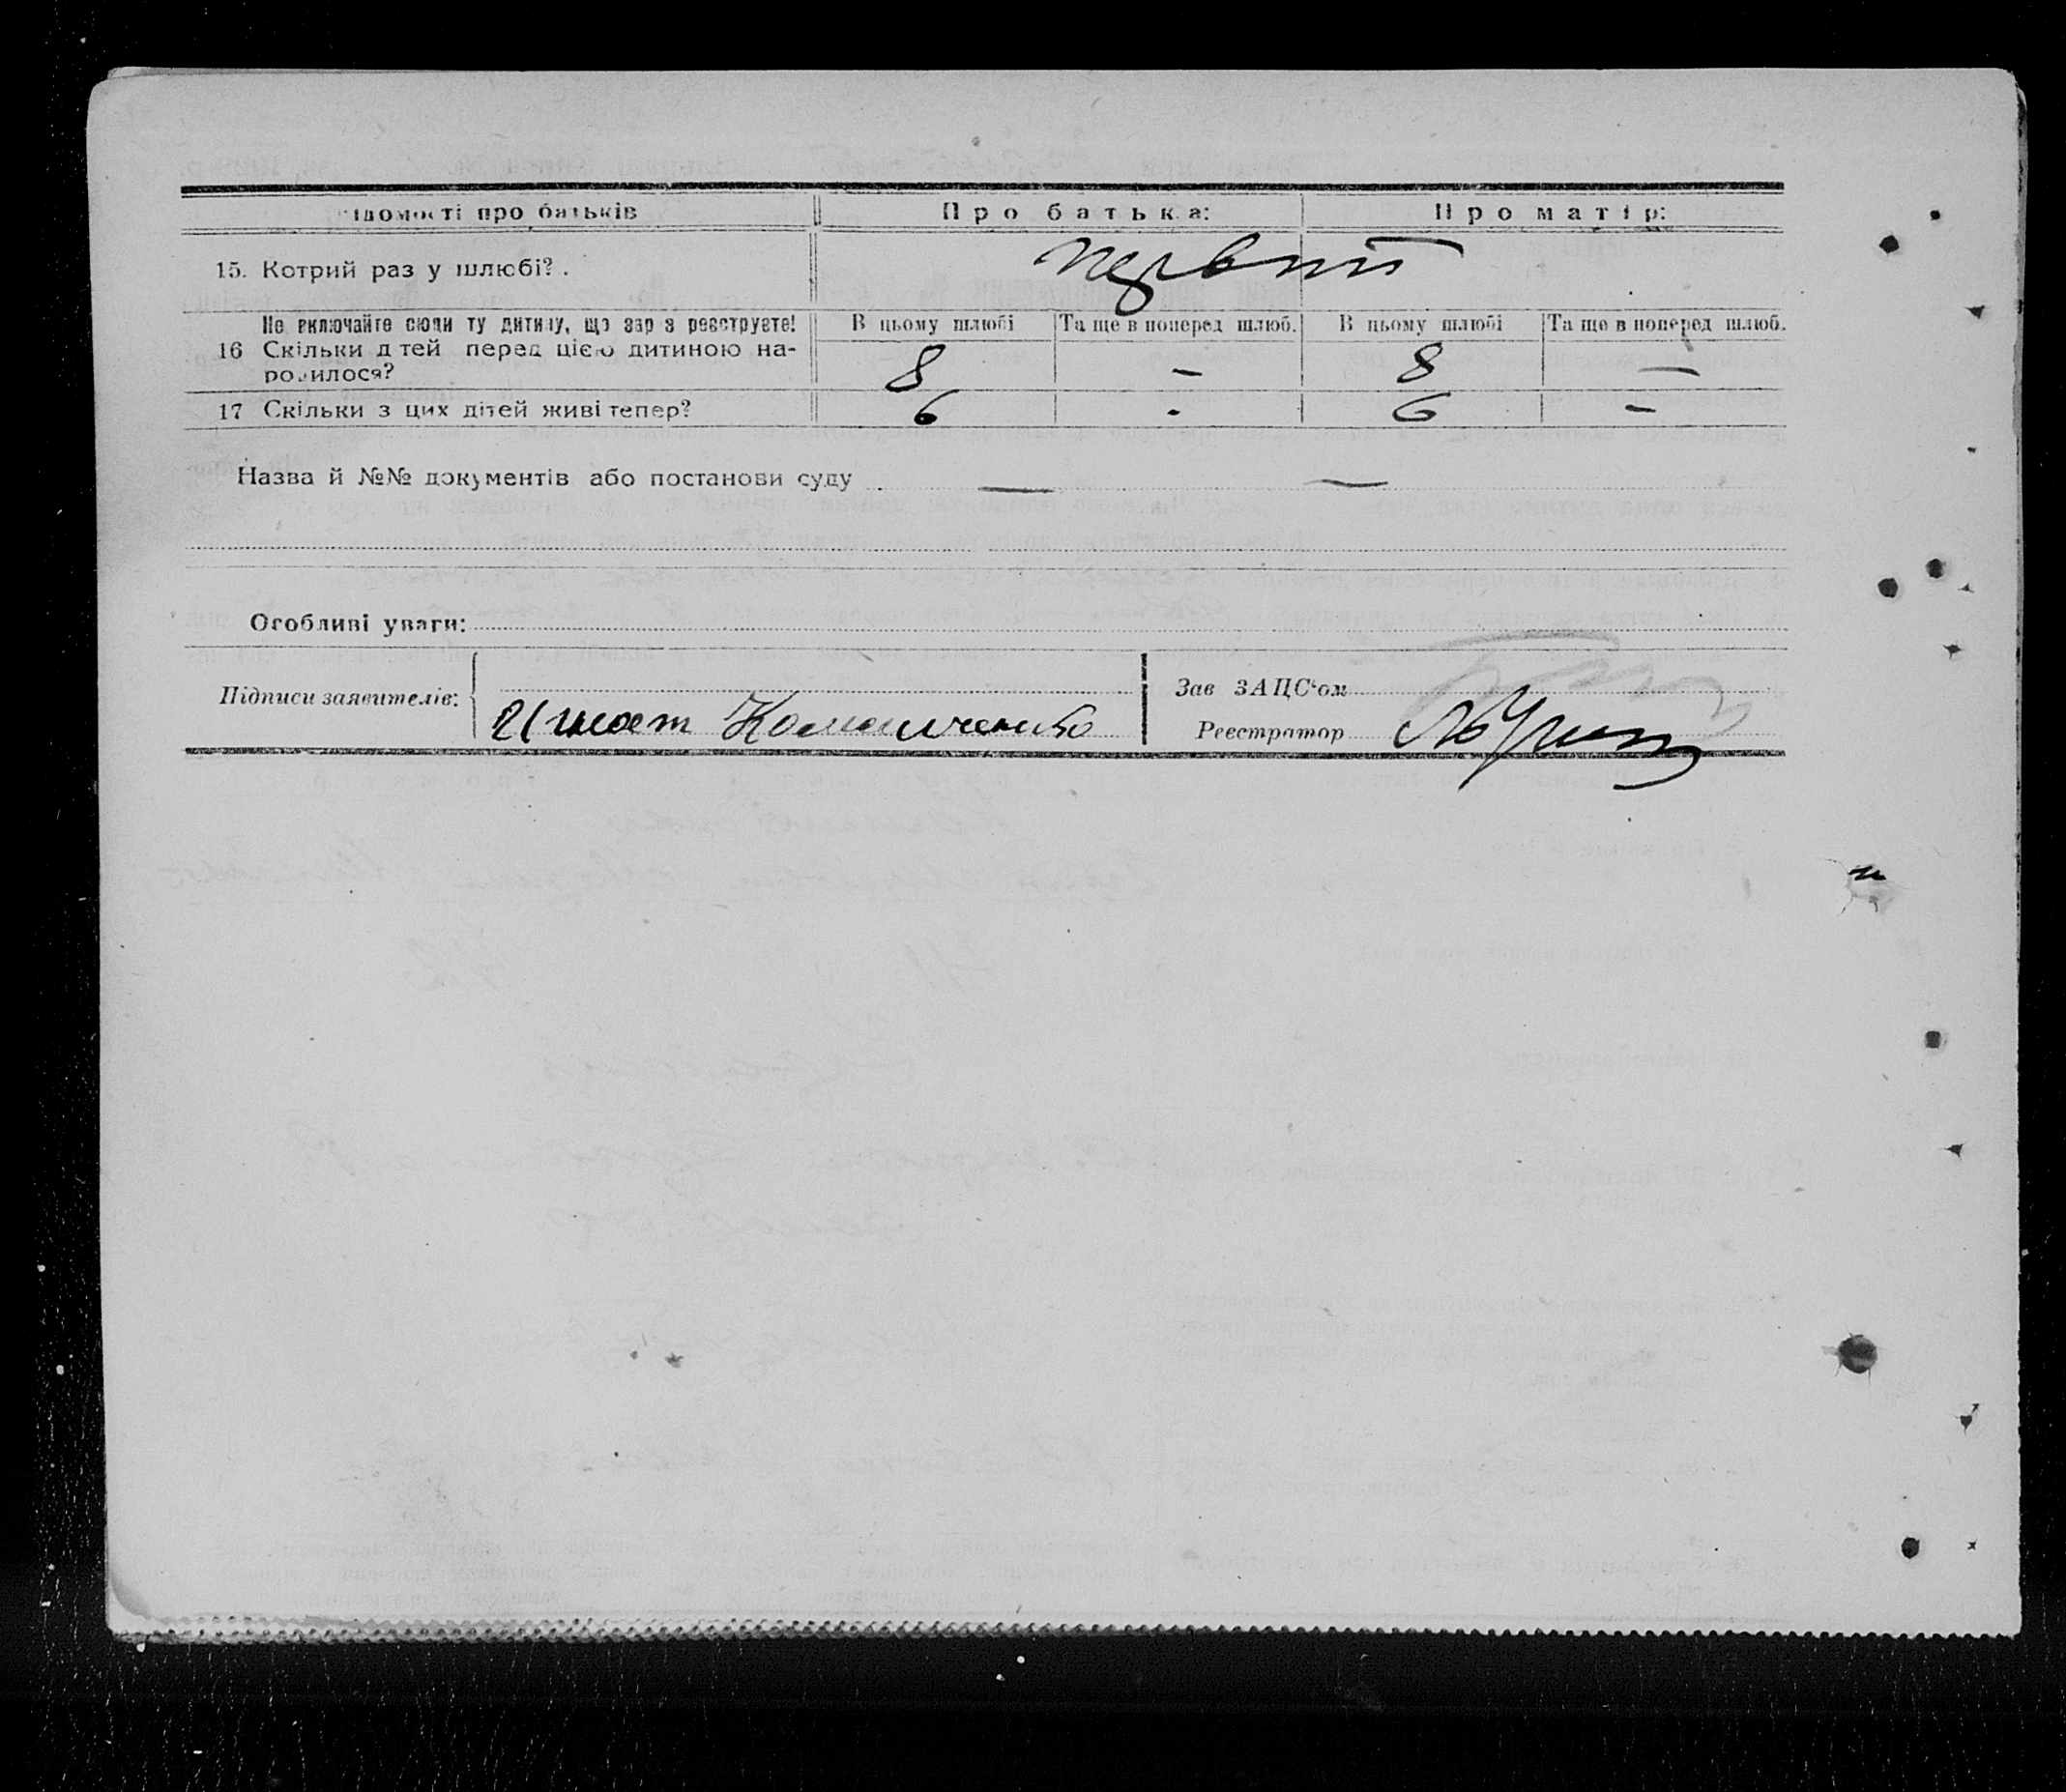 ідомості про батьків Про батька: Про матір:
15. Котрий раз у шлюбі? . первий
Не включайте сюди ту дитину, що зар з реєструєте! В цьому шлюбі Та ще в поперед шлюб. В цьому шлюбі Та ще в поперед шлюб.
16 Скільки д тей перед цією дитиною на-
родилося? 8 – 8 —
17 Скільки з цих дітей живі тепер? 6 - 6 –
Назва й №№ документів або постанови суду — —
Особливі уваги:
Підписи заявителів: Зав ЗАЦС'ом
Игнат Реєстратор